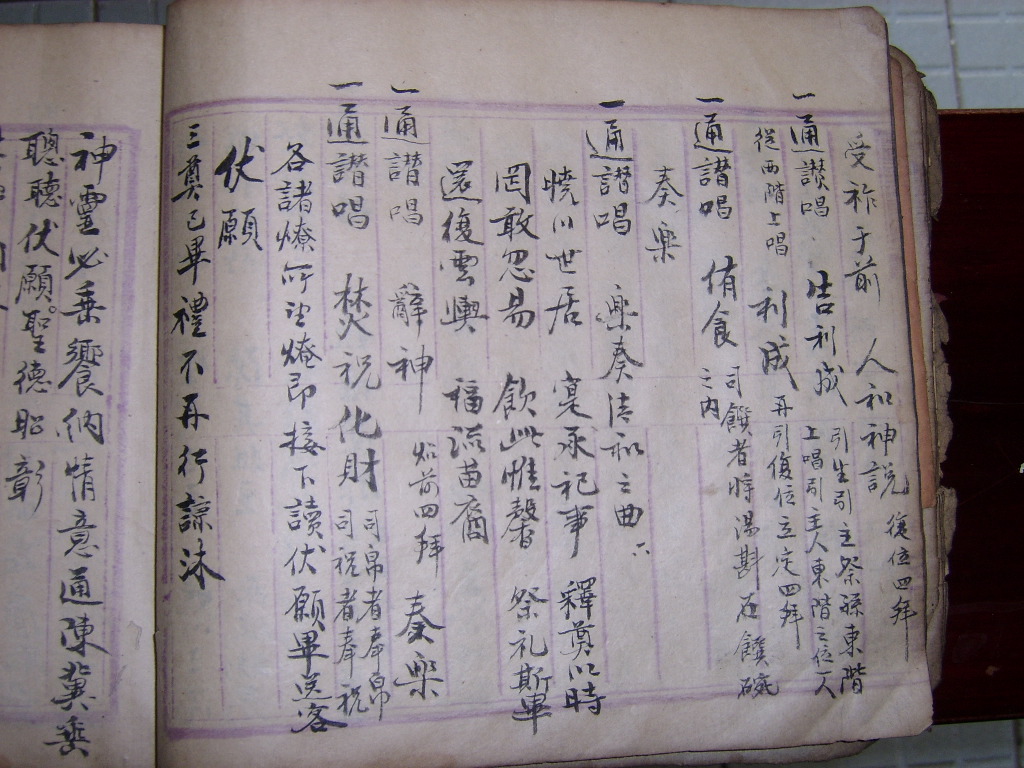 受祚于前 人和神説 復位四拜
一通讃唱 告利成 引生引主祭孫東階
上唱引主人東階之位
從西階上唱 利成 再引復位立定四拜
一通讃唱 侑食 司饌者將湯斟在饌碗
之内
奏樂
一通讃唱 樂奏清和之曲
曉川世居 寔承祀事 釋奠以時
罔敢忽易 飲此惟馨 祭礼斯畢
還復雲輿 福流苗裔
一通讃唱 辭神 炤前四拜 奏樂
一通讃唱 焚祝化財 司帛者奉帛
司祝者奉祝
各諸燎所望燎即接下讀伏願畢送客
伏願
三奠已畢禮不再行諒沐
神靈必垂饗納情意通陳冀垂
聰聽伏願聖德昭彰